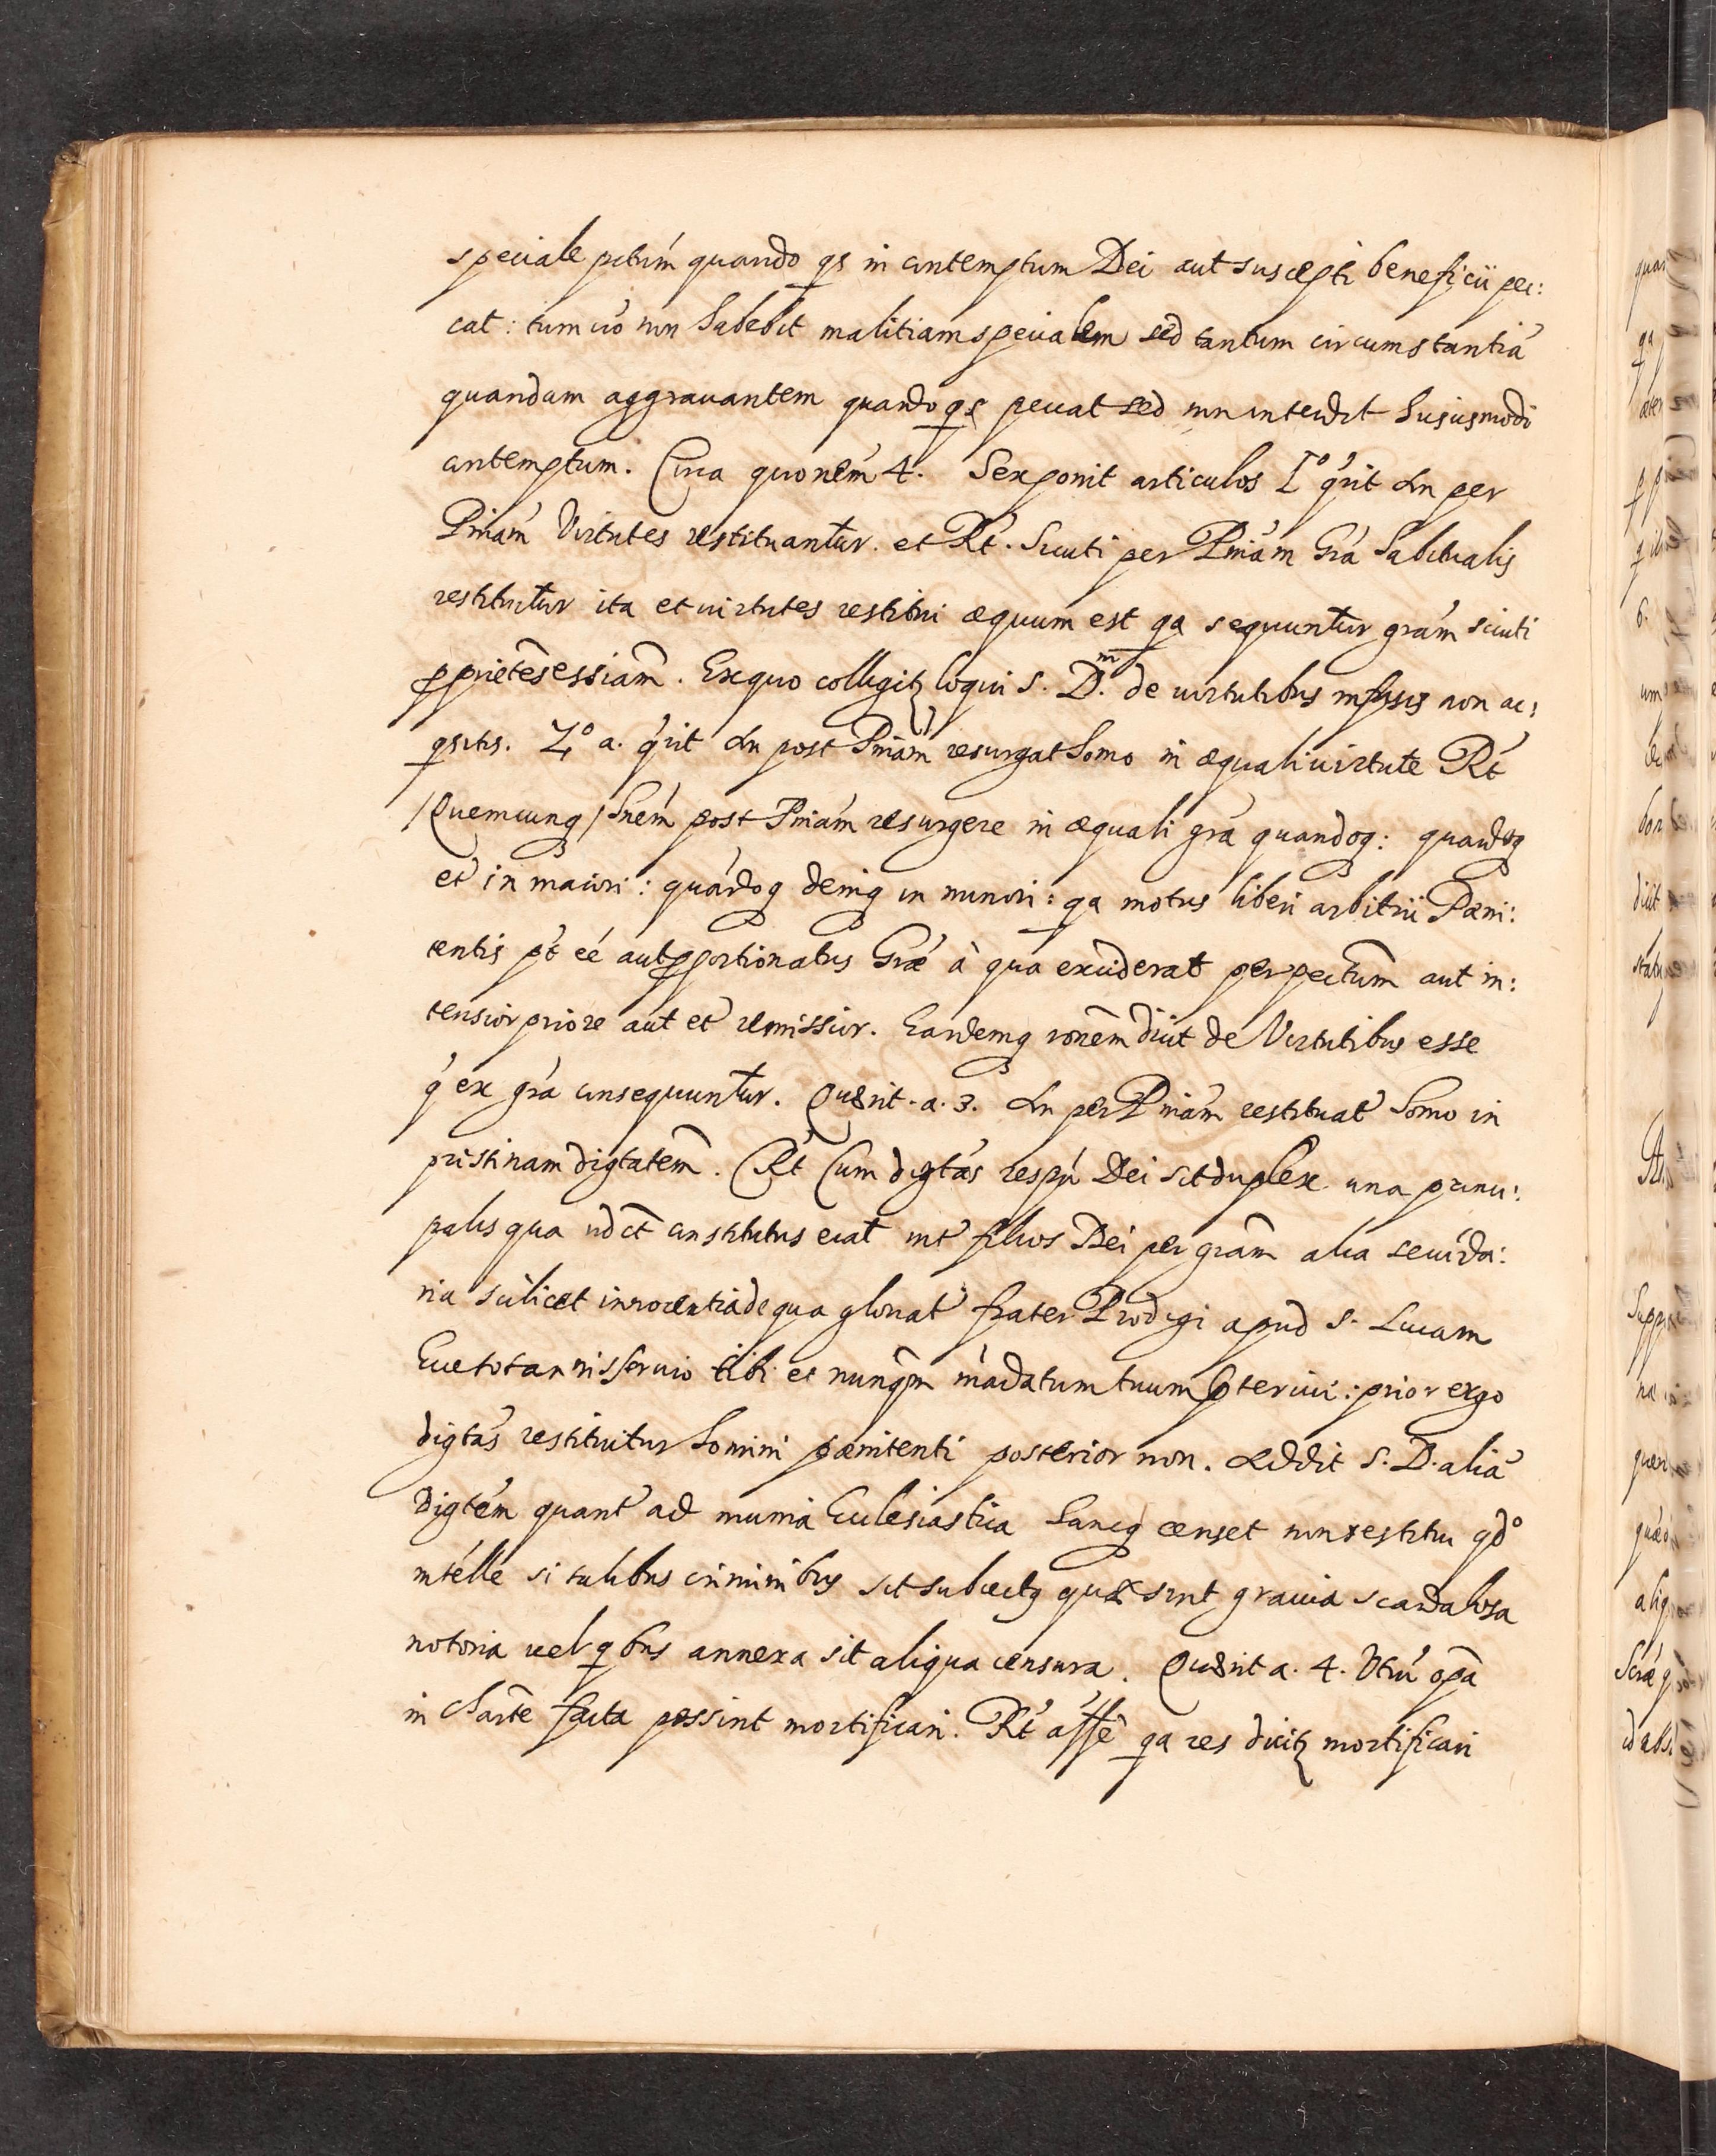 speciale pctúm quando qs in contemptum Dei aut suscepti beneficii pec:
cat: tum uó non habebit malitiam specialem sed tantum circumstantiá
quandam aggrauantem quando qs peccat sed non intendit huiusmodi
contemptum. Circa quonem 4. S exponit articulos I° qrit An per
Pniám Virtutes restituantur. et Rt. Sicuti per Pniám Gra habitualis
restituitur ita et uirtutes restitui æquum est qa sequuntur grám sicuti
pprietes essiam. Ex quo colligitz loqui S. D.m de uirtutibus infusis non ac:
qsitis. 2° a. qrit An post Pniám resurgat homo in æquali uirtute Rt
/Quemcunq/ hnem post Pniám resurgere in æquali gra quandoq: quandoq
et in maiori: quandoq deniq in minori: qa motus liberi arbitrii Pæni:
tentis pt eé aut pportionatus Græ à qua exciderat per pectum aut in:
tensior priore aut et remissior. Eandemq ronem dicit de Virtutibus esse
q ex gra consequuntur. Quærit. a. 3. An per Pniám restituat homo in
pristinam digtatem. Rt Cum digtas respu Dei sit duplex una princi:
palis qua ndct constitutus erat int filios Dei per gram alia secúda:
ria scilicet innocentia de qua gloriat frater Prodigi apud S. Lucam
Ecce tot annis seruio tibi et nunqm mádatum tuum pterivi: prior ergo
digtas restituitur homini pænitenti posterior non. Addit S. D. aliá
Digtém quant ad munia Ecclesiastica hancq censet non restitui qdo
intélle si talibus criminibus sit subiectq quæ sint grauia scandalosa
notoria uel qbus annexa sit aliqua censura. Quærit a. 4. Vtrú opa
in charte facta possint mortificari. Rt affe qa res dicitz mortificari